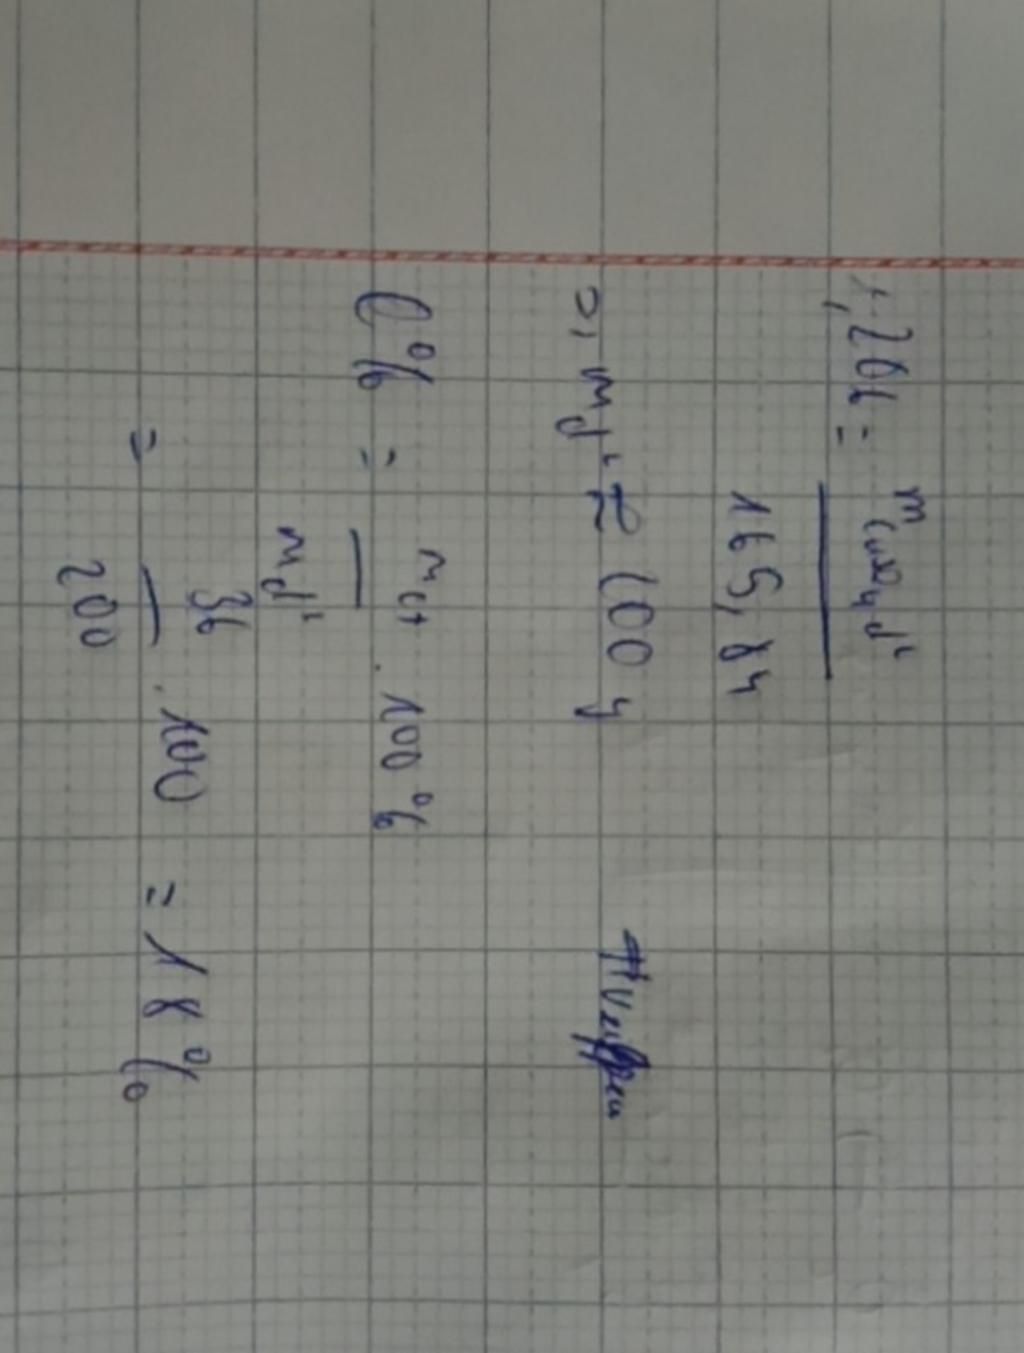 1,206 = m dd' / 165,84
=> md' ≈ 200 g
C% = mct / md' . 100%
= 36 / 200 . 100 = 18%